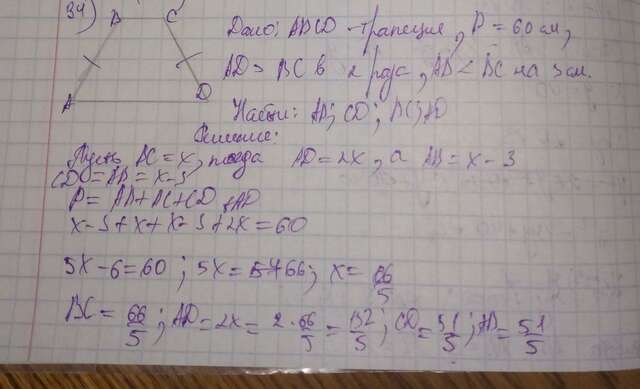 34)
B C
A D
Дано: ABCD - трапеция, P = 60 см,
AD > BC в 2 раза, AB < BC на 3 см.
Найти: AB; CD; BC; AD
Решение:
Пусть BC = x, тогда AD = 2x, а AB = x - 3
CD = AB = x - 3
P = AB + BC + CD + AD
x - 3 + x + x - 3 + 2x = 60
5x - 6 = 60; 5x = 66; x = 66/5
BC = 66/5; AD = 2x = 2·66/5 = 132/5; CD = 51/5; AB = 51/5